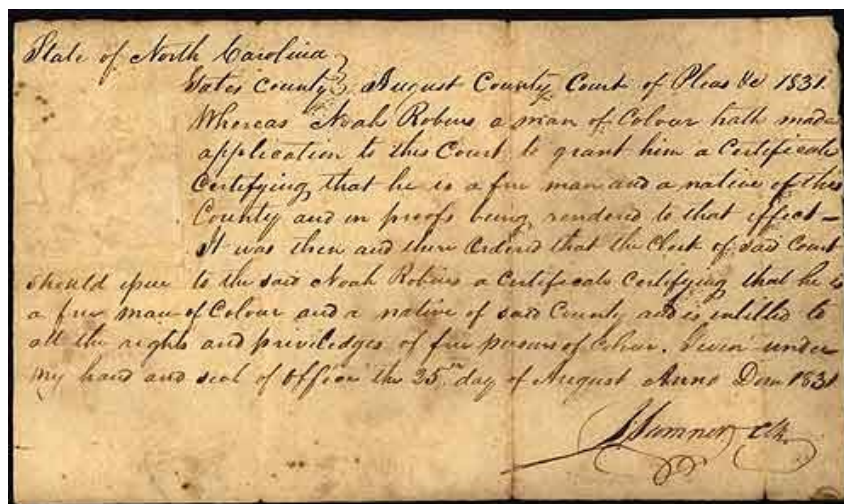 State of North Carolina }
Gates County } August County Court of Pleas &c 1831.
Whereas Noah Robins a man of Colour hath made
application to this Court to grant him a Certificate
Certifying that he is a free man and a native of this
County and in proofs being rendered to that effect –
It was then and there Ordered that the Clerk of said Court
should issue to the said Noah Robins a Certificate Certifying that he is
a free man of Colour and a native of said County and is intitled to
all the rights and priviledges of free persons of Colour. Given under
my hand and seal of Office the 25th day of August Anno Dom 1831
Sumner Clk.